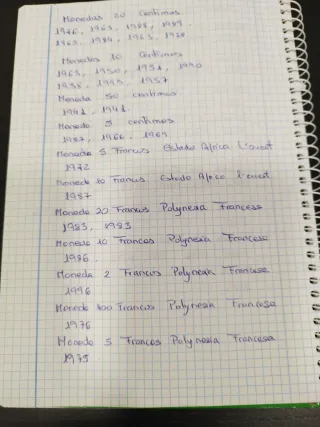 Monedas 20 centimos
1976, 1963, 1988, 1989.
1963. 1984, 1963, 1928
Monedas 10 centimos
1963, 1950, 1951, 1990
1938, 1993, 1957
Moneda 50 centimos
1941, 1941.
Moneda 5 centimos
1987, 1966, 1969.
Moneda 5 Francos Estado Africa L'ouest
1972
Moneda 10 Francos Estado Africa l'ouest
1987
Moneda 20 Francos Polynesia Francesa
1983, 1983
Moneda 10 Francos Polynesia Francesa
1986
Moneda 2 Francos Polynesia Francesa
1996
Moneda 100 Francos Polynesia Francesa
1976
Moneda 5 Francos Polynesia Francesa
1975